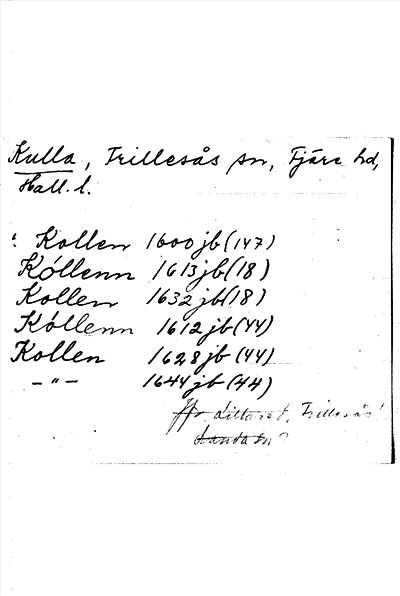 Kulla, Frillesås sn, Fjäre hd,
Hall. l.
: Kollen 1600 jb (147)
Kóllenn 1613 jb (18)
Kollen 1632 jb (18)
Kóllenn 1612 jb (44)
Kollen 1628 jb (44)
–"– 1644 jb (44)
Jfr Frillesås
Landa sn?